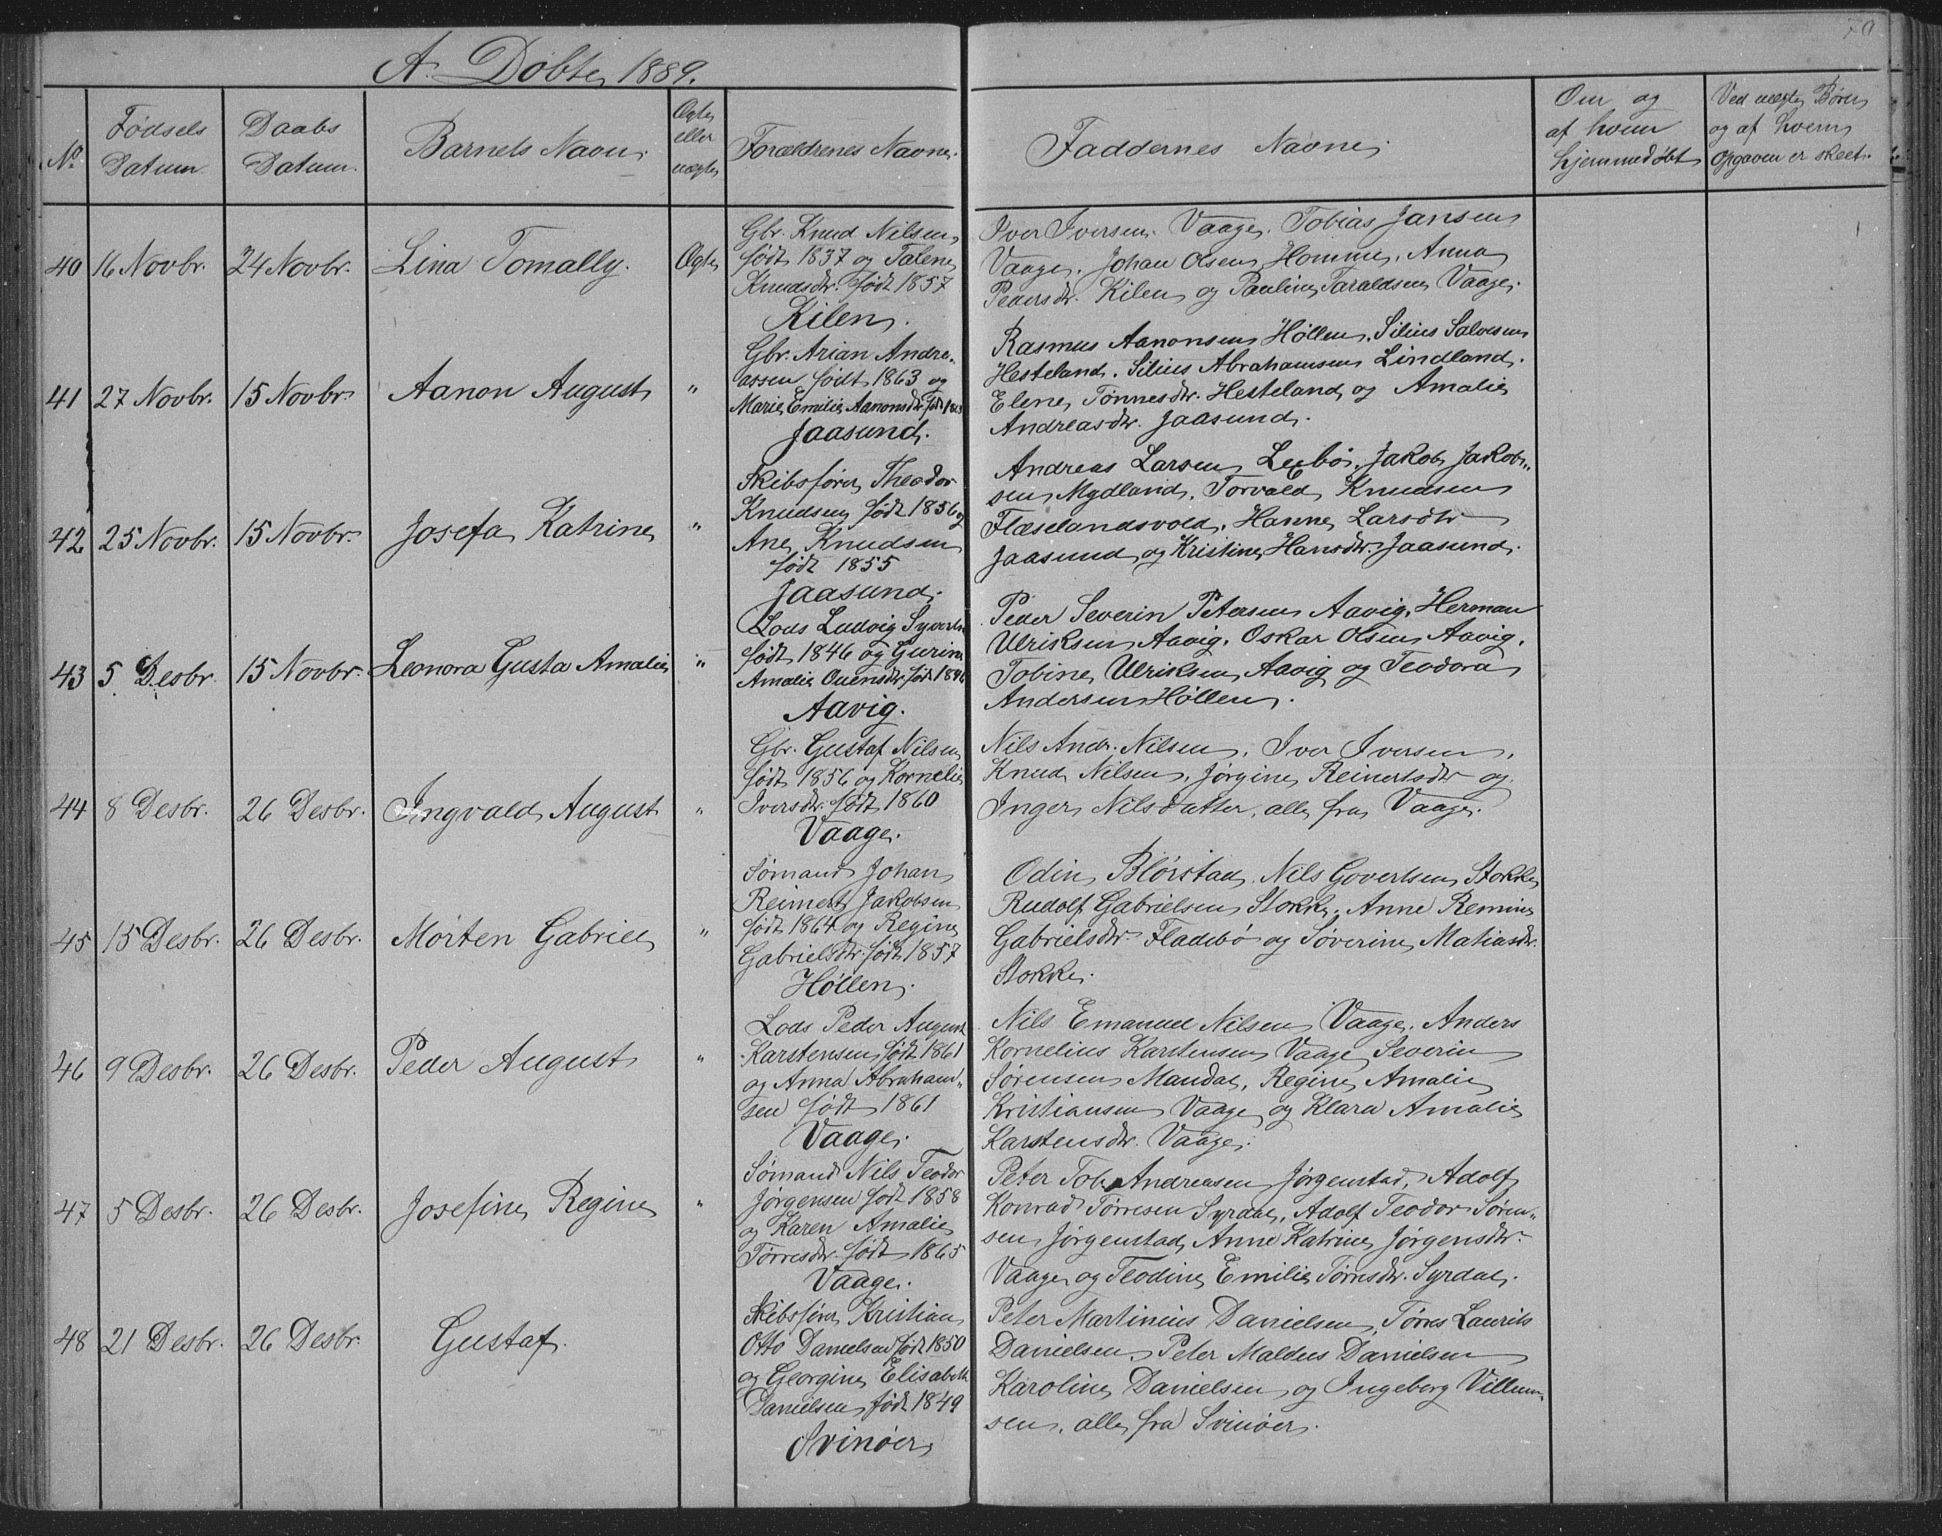 70
A. Døbte, 1889.
No.
Fødsels Datum.
Daabs Datum.
Barnets Navn.
Ægte eller uægte
Forældrenes Navne.
Faddernes Navne.
Om og af hvem hjemmedøbt
Ved uægte Børn og af hvem Opgaven er skeet.
40 16 Novbr. 24 Novbr. Lina Tomally. Ægte
Gbr. Knud Nilsen
født 1837 og Talene
Knudsdtr. født 1857
Kilen.
Iver Iversen Vaage, Tobias Jansen
Vaage, Johan Olsen Homme, Anna
Pedersdtr. Kilen og Pauline Taraldsen Vaage.
41 27 Novbr. 15 Novbr. Aanon August "
Gbr. Arian Andre-
assen født 1863 og
Marie Emilie Aanonsdtr. født
Jaasund.
Rasmus Aanonsen Høllen, Silius Salvesen
Hesteland, Silius Abrahamsen Lindland,
Elene Tønnesdtr. Hesteland og Amalie
Andreasdtr. Jaasund.
42 25 Novbr. 15 Novbr. Josefa Katrine "
Skibsfører Theodor
Knudsen født 1856 og
Ane Knudsen
født 1855
Jaasund.
Andreas Larsen Lexbø, Jakob Jakob-
sen Mydland, Torvald Knudsen
Flæselandsvold, Hanne Larsdtr
Jaasund og Kristine Hansdtr. Jaasund.
43 5 Desbr. 15 Novbr. Leonora Gusta Amalie "
Lods Ludvig Syverts
født 1846 og Gurine
Amalie Ouensdtr. født
Aavig.
Peder Severin Petersen Aavig, Herman
Ulriksen Aavig, Oskar Olsen Aavig,
Tobine Ulriksen Aavig og Teodora
Andersen Høllen.
44 8 Desbr. 26 Desbr. Ingvald August "
Gbr. Gustaf Nilsen
født 1856 og Kornelie
Iversdtr. født 1860
Vaage.
Nils Andr. Nilsen, Iver Iversen,
Knud Nilsen, Jørgine Reinertsdtr og
Inger Nilsdatter, alle fra Vaage.
45 15 Desbr. 26 Desbr. Morten Gabriel "
Sømand Johan
Reinert Jakobsen
født 1864 og Regine
Gabrielsdtr. født 1857
Høllen.
Odin Blørstad, Nils Govertsen Stokke
Rudolf Gabrielsen Stokke, Anne Remine
Gabrielsdtr. Fladebø og Søverine Matiasdtr.
Stokke.
46 9 Desbr. 26 Desbr. Peder August "
Lods Peder August
Karstensen født 1861
og Anna Abraham-
sen født 1861
Vaage.
Nils Emanuel Nilsen Vaage, Anders
Kornelius Karstensen Vaage, Severin
Sørensen Mandal, Regine Amalie
Kristiansen Vaage og Klara Amalie
Karstensdtr. Vaage.
47 5 Desbr. 26 Desbr. Josefine Regine "
Sømand Nils Teodor
Jørgensen født 1858
og Karen Amalie
Tørresdtr. født 1865
Vaage.
Peter Tob. Andreasen Jørgenstad, Adolf
Konrad Tørresen Syrdal, Adolf Teodor Søren-
sen Jørgenstad, Anne Katrine Jørgensdtr
Vaage og Teodine Emilie Tørresdtr. Syrdal.
48 21 Desbr. 26 Desbr. Gustaf.
Skibsfører Kristian
Otto Danielsen født 1850
og Georgine Elisabeth
Danielsen født 1849
Svinøer
Peter Martinius Danielsen, Tørres Laurits
Danielsen, Peter Maldus Danielsen
Karoline Danielsen og Ingeborg Villum-
sen, alle fra Svinøer.